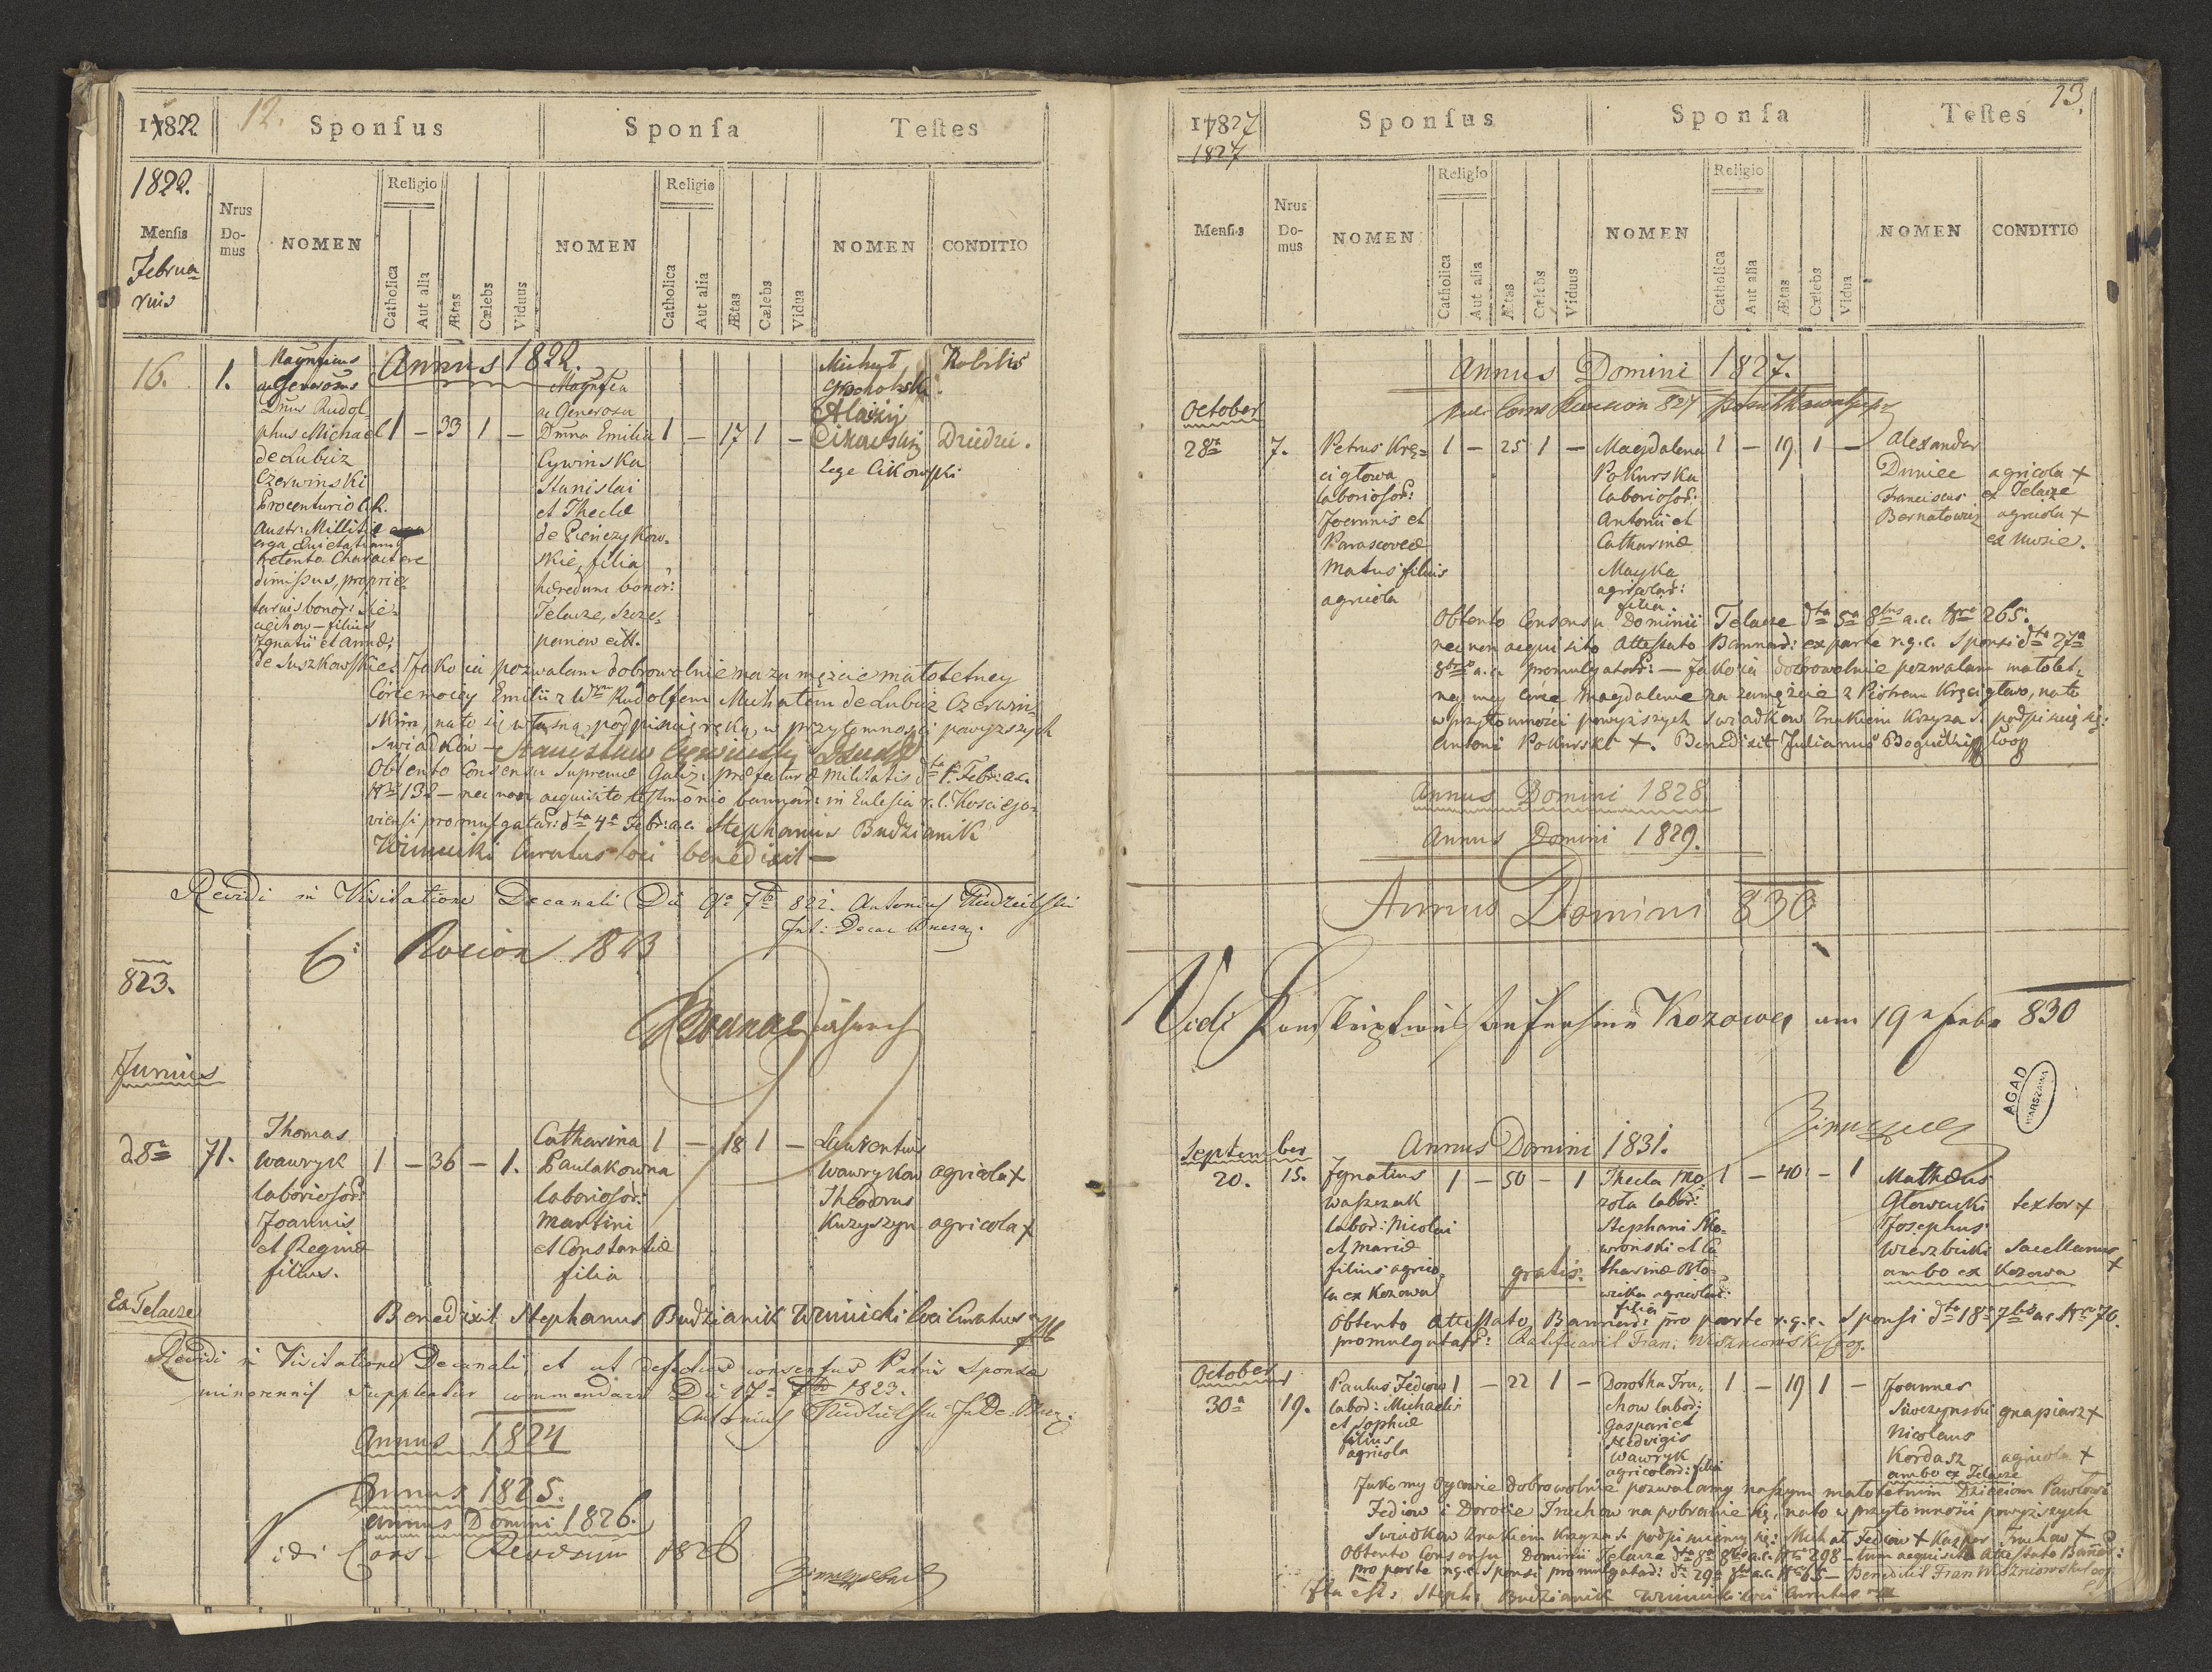 1822
12.
Sponsus
Sponsa
Testes
1822.
Mensis
Februa-
rius
Nrus Do-mus
NOMEN
Religio
Catholica
Aut alia
Ætas
Cælebs
Viduus
NOMEN
Religio
Catholica
Aut alia
Ætas
Cælebs
Vidua
NOMEN
CONDITIO
Annus 1822.
16.
1.
Magnificus
ac Generosus
Dnus Rudol-
phus Michael
de Lubicz
Czerwinski
Procenturio C.R.
Austr: Militiæ
erga Quietationem
retento Charactere
dimissus, proprie-
tarius bonor: Sie-
filius
Ignatii et Annæ
de Suszkowskie
1 – 33 1 –
Magnifica
ac Generosa
Dnna Emilia
Cywinska
Stanislai
et Theclæ
de Pieńczykow-
skie, filia
hæredum bonor:
Telacze, Szcze-
panow ett.
1 – 17 1 –
Michał
Grocholski
Alaizij
Cikowskij
lege Cikowski
Nobilis
Dziedzic.
Jako ja pozwalam dobrowolnie na zamęzcie małoletney
Córce moiey Emilii z Wm Rudolfem Michałem de Lubicz Czerwin-
skim, na to się własną podpisuię ręką w przytomności powyzszych
swiadków – Stanisław Cywinski
Obtento Consensu Supremæ Galiz: præfecturæ Militatis dto 1a Febr: a.c.
Nro 132 – nec non acquisito testimonio bannor: in Eclesia r.l.
promulgator: dto 4a Febr: a.c. Stephanus Budzianik
Winnicki Curatus loci benedixit –
Revidi in Visitatione Decanali Die 9a 7br 822. Antonius
Rocion 1823
823.
Junius
d. 8a
71.
Thomas
Wawryk
laboriosor:
Joannis
et Reginæ
filius.
1 – 36 – 1.
Catharina
Paulakowna
laboriosor:
Martini
et Constantiæ
filia
1 – 18 1 –
Laurentius
Wawrykow agricola +
Theodorus
Kuzyszyn agricola +
Ex Telacze
Benedixit Stephanus Budzianik Winnicki loci Curatus
Revidi in Visitatione Decanali, et ut defectus consensus Patris Sponsæ
minorennis suppleatur commendavi Die 17a 7br 1823.
Antonius
Annus 1824
Annus 1825.
Annus Domini 1826.
Vidi Cons: 1826
13
1827
1827
Sponsus
Sponsa
Testes
Mensis
Nrus Do-mus
NOMEN
Religio
Catholica
Aut alia
Ætas
Cælebs
Viduus
NOMEN
Religio
Catholica
Aut alia
Ætas
Cælebs
Vidua
NOMEN
CONDITIO
Annus Domini 1827.
October
28a
7.
Petrus Krę-
cigłowa
laboriosor:
Joannis et
Parascoveæ
Matus filius
agricola
1 – 25 1 –
Magdalena
Pokurska
laboriosor:
Antonii et
Catharinæ
Mayka
agricolar:
filia
1 – 19 1 –
Alexander
Duniec agricola +
Franciscus ex Telacze
Bernatowicz agricola +
Obtento Consensu Dominii Telacze dto 5a 8bris a.c. Nro 265.
nec non acquisito Attestato Bannor: ex parte r.g.c. Sponsi dto 27a
8bris a.c. promulgator: – Jako ja dobrowolnie pozwalam małolet-
ney mey Corce Magdalenie na zamęźcie z Piotrem Kręcigłowo, na to
w przytomności powyższych swiadkow Znakiem Krzyza S. podpisuię się:
Antoni Pokurski +. Benedixit Julianus
Annus Domini 1828.
Annus Domini 1829.
Annus Domini 830
Vidi Kozowa am 19 830
AGAD
WARSZAWA
Annus Domini 1831.
September
20.
15.
Ignatius
Waszczak
labor: Nicolai
et Mariæ
filius agrico-
la ex Kozowa
1 – 50 – 1
gratis.
Thecla Mo-
zoła labor:
Stephani
et Ca-
tharinæ
agricolar:
filia
1 – 40 – 1
Mathæus
Głowacki textor +
Josephus
Wierzbicki
ambo ex Kozowa
Obtento Attestato Bannor: pro parte r.g.c. Sponsi dto 18a 7bris a.c. Nro 70.
promulgator: Ratificavit Fran: Wiszniowski Coop.
October
30a
19.
Paulus Fediow
labor: Michaelis
et Sophiæ
filius
agricola
1 – 22 1 –
Dorotha Tru-
chow labor:
Gaspari et
Hedvigis
Wawryk
agricolar: filia
1 – 19 1 –
Joannes
gnapiarz +
Nicolaus
Kordasz agricola +
ambo ex Telacze
Jako my Oycowie dobrowolnie pozwalamy naszym małoletnim Dzieciom Pawłowi
Fediow i Dorocie Truchow na pobranie się, na to w przytomności powyższych
Swiadkow Znakiem Krzyza S. podpisuiemy się: Michał Fediow + Kasper Truchow +
Obtento Consensu Dominii Telacze dto 8a 8bris a.c. Nro 298 – tum acquisito Attestato Bannor:
pro parte r.g.c. Sponsi promulgator: dto 29a 8bris a.c. Nro 65 – Benedixit Fran Wiszniowski coop:
Ita est: Steph: Budzianik Winnicki loci Curatus